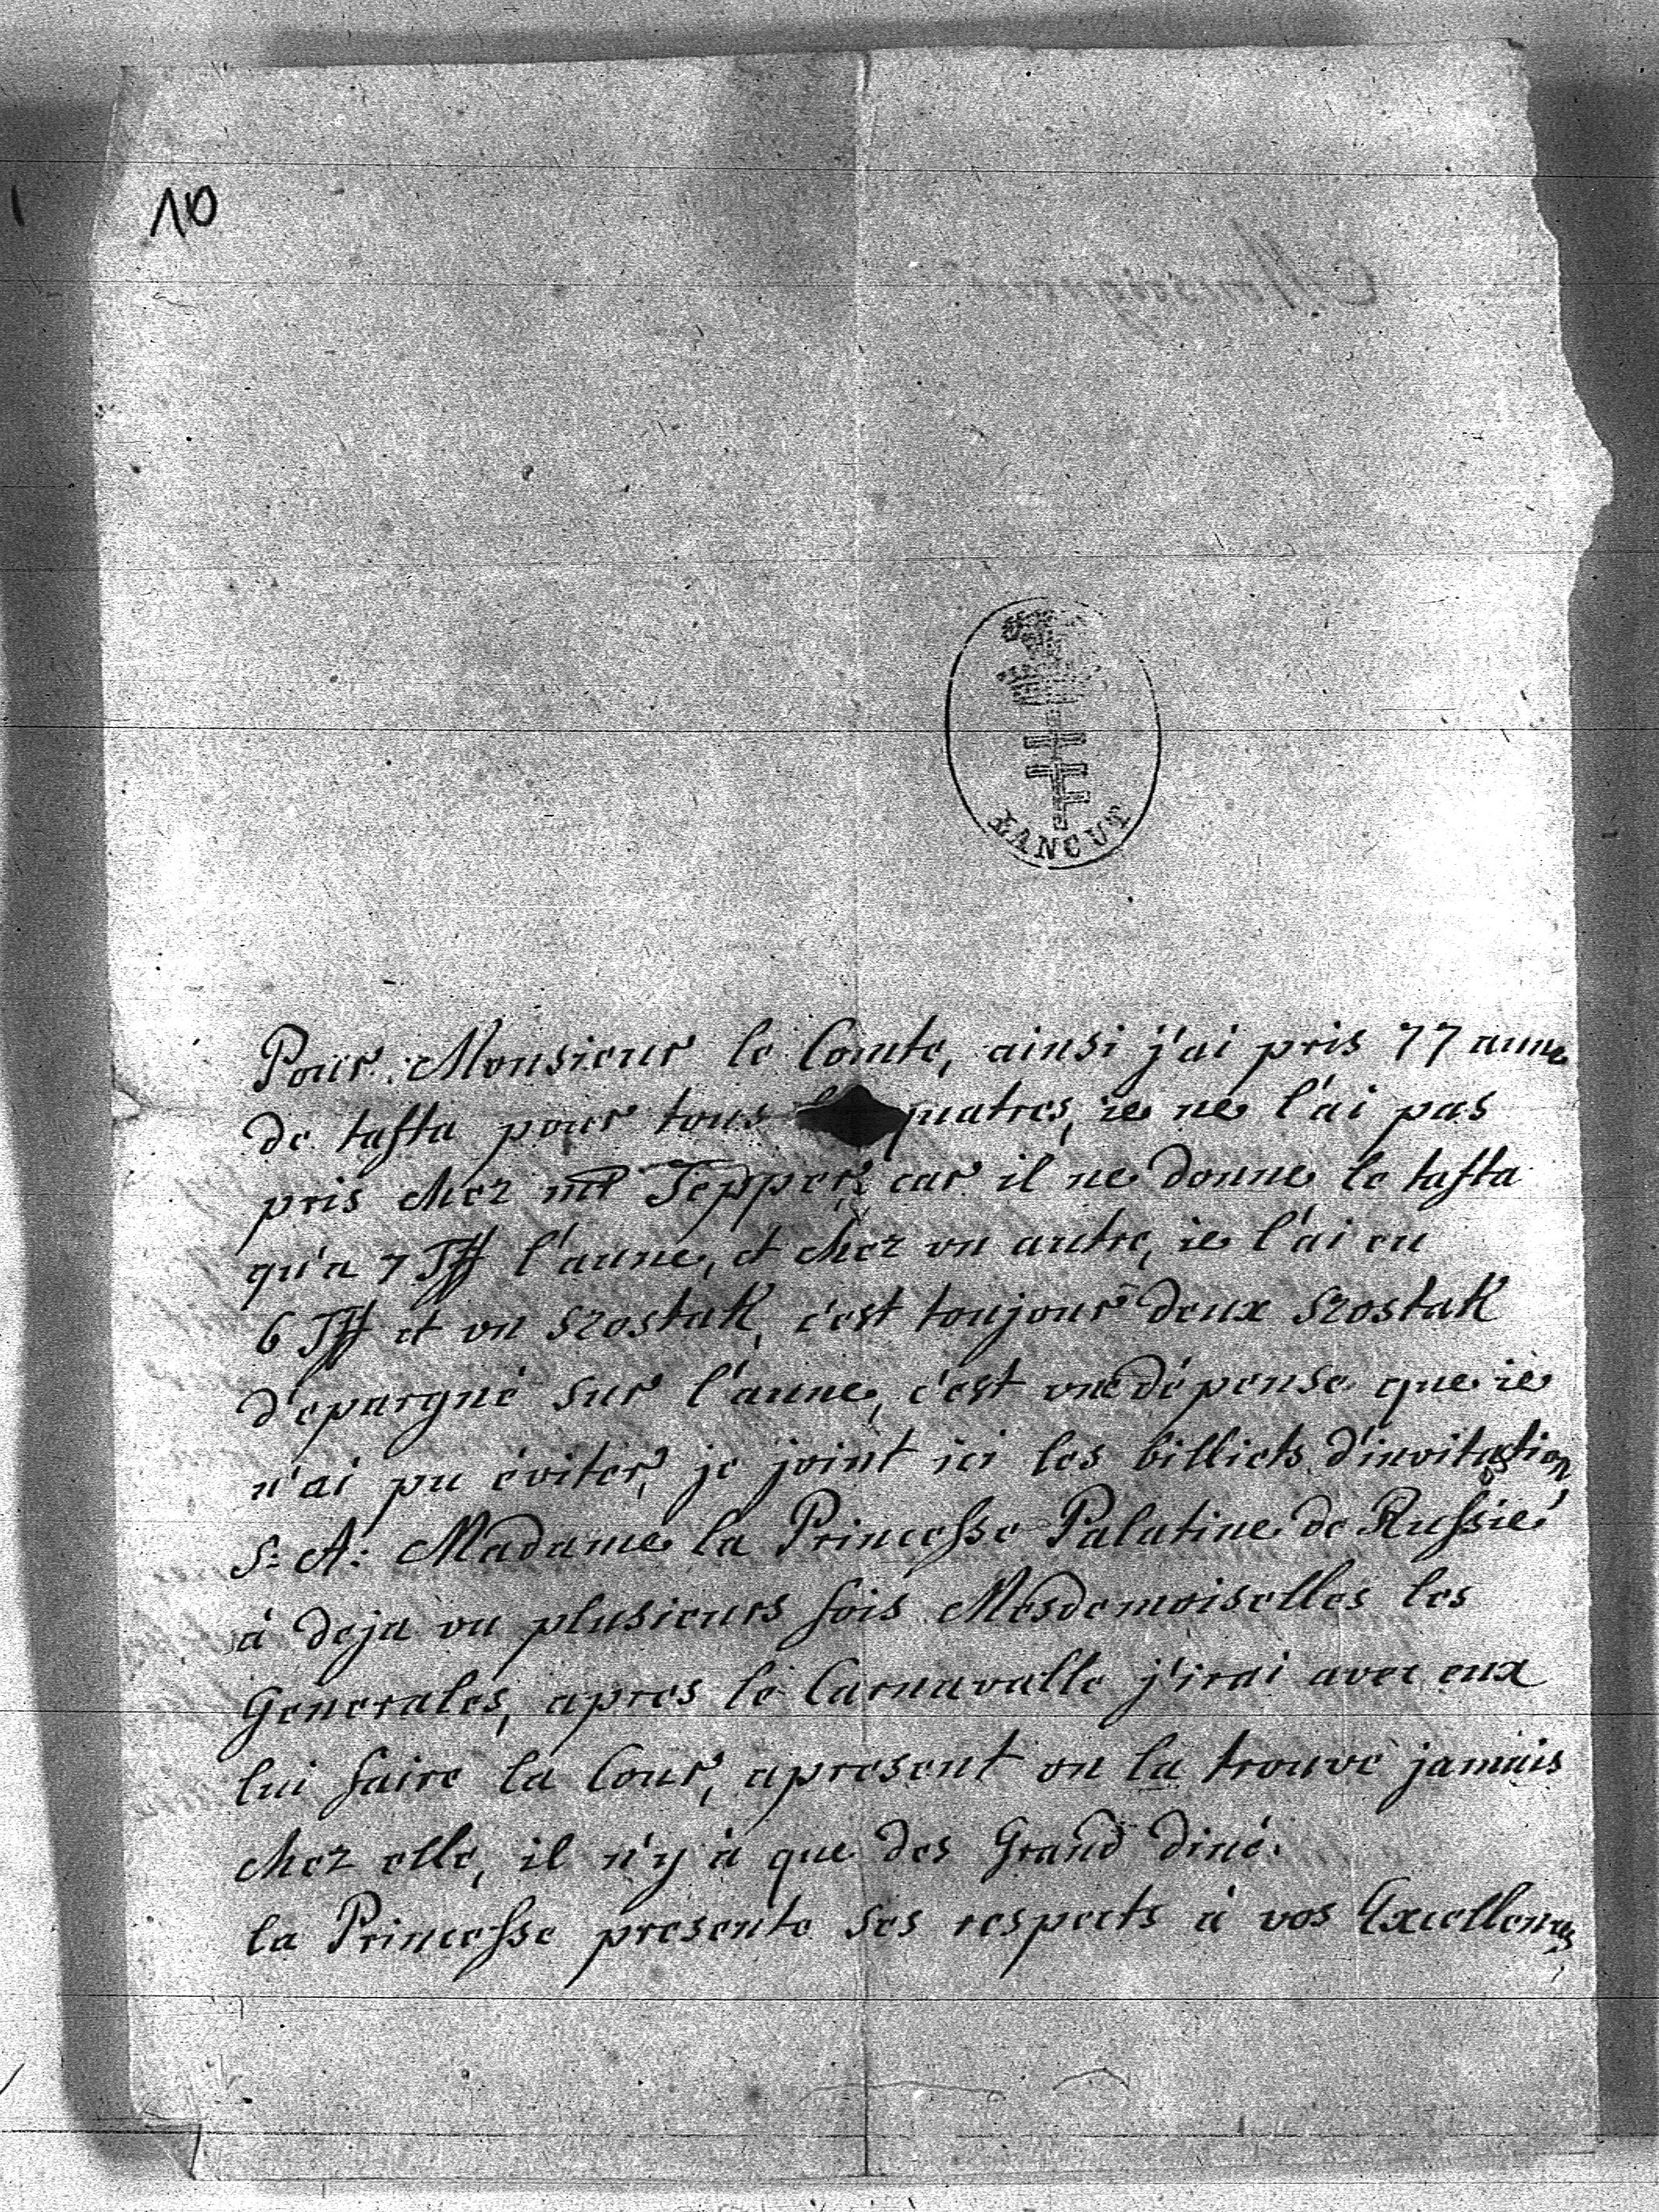 10
ŁANCUT
Pour Monsieur le Comte, ainsi j'ai pris 77 aune
de tafta pour tous quatres, ie ne l'ai pas
pris chez mr Tepper, car il ne donne le tafta
qu'a 7 l'aune, et chez un autre, ie l'ai eu
6 et un szostak, c'est toujours deux szostak
d'epargné sur l'aune, c'est une dépense que ie
n'ai pu éviter, je joint ici les billiets d'invitation
S: A: Madame la Princesse Palatine de Russie
à deja vu plusieurs fois Mesdemoiselles les
Generales, apres le Carnavalle j'irai avec eux
lui faire la Cour, apresent on la trouve jamais
chez elle, il n'y à que des Grand diné.
la Princesse presente ses respects à vos Excellences